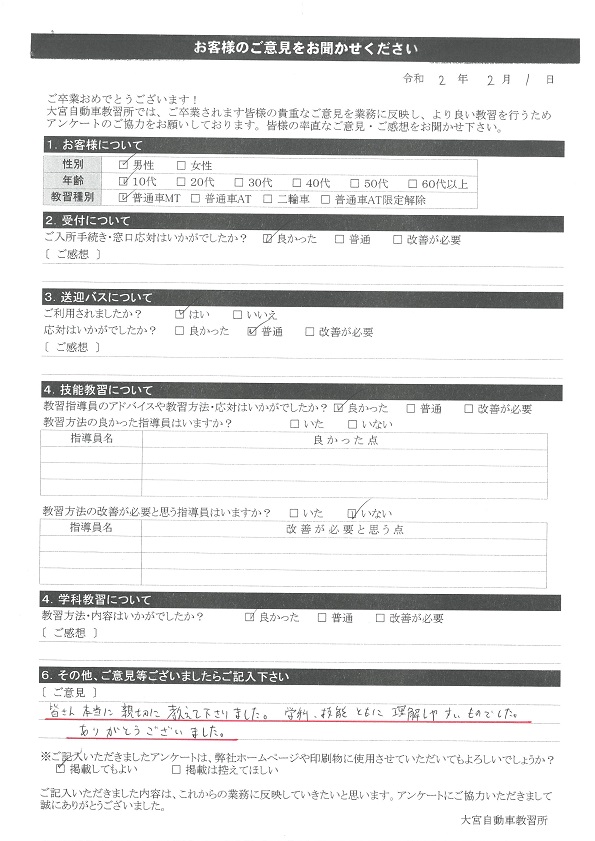 お客様のご意見をお聞かせください
令和 2 年 2 月 1 日
ご卒業おめでとうございます！
大宮自動車教習所では、ご卒業されます皆様の貴重なご意見を業務に反映し、より良い教習を行うため
アンケートのご協力をお願いしております。皆様の率直なご意見・ご感想をお聞かせ下さい。
1. お客様について
性別 ☑男性 □女性
年齢 ☑10代 □20代 □30代 □40代 □50代 □60代以上
教習種別 ☑普通車MT □普通車AT □二輪車 □普通車AT限定解除
2. 受付について
ご入所手続き・窓口応対はいかがでしたか？ ☑良かった □普通 □改善が必要
〔 ご感想 〕
3. 送迎バスについて
ご利用されましたか？ ☑はい □いいえ
応対はいかがでしたか？ □良かった ☑普通 □改善が必要
〔 ご感想 〕
4. 技能教習について
教習指導員のアドバイスや教習方法・応対はいかがでしたか？ ☑良かった □普通 □改善が必要
教習方法の良かった指導員はいますか？ □いた □いない
指導員名 良かった点
教習方法の改善が必要と思う指導員はいますか？ □いた ☑いない
指導員名 改善が必要と思う点
4. 学科教習について
教習方法・内容はいかがでしたか？ ☑良かった □普通 □改善が必要
〔 ご感想 〕
6. その他、ご意見等ございましたらご記入下さい
〔 ご意見 〕
皆さん本当に親切に教えて下さりました。学科、技能ともに理解しやすいものでした。
ありがとうございました。
※ご記入いただきましたアンケートは、弊社ホームページや印刷物に使用させていただいてもよろしいでしょうか？
☑掲載してもよい □掲載は控えてほしい
ご記入いただきました内容は、これからの業務に反映していきたいと思います。アンケートにご協力いただきまして
誠にありがとうございました。
大宮自動車教習所